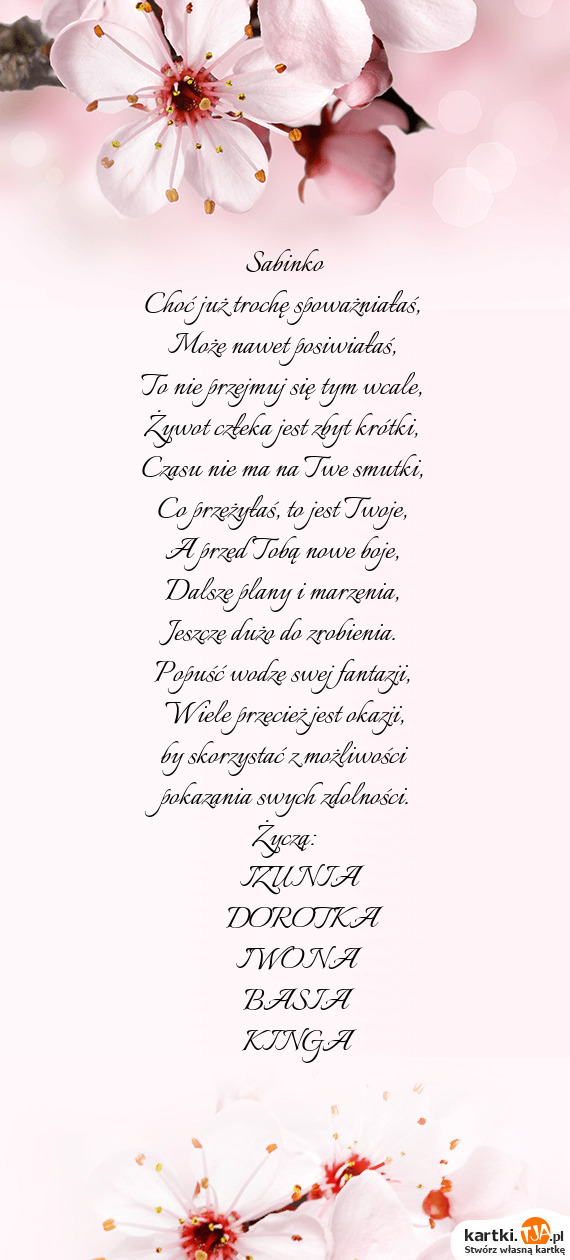 Sabinko
Choć już trochę spoważniałaś,
Może nawet posiwiałaś,
To nie przejmuj się tym wcale,
Żywot człeka jest zbyt krótki,
Czasu nie ma na Twe smutki,
Co przeżyłaś, to jest Twoje,
A przed Tobą nowe boje,
Dalsze plany i marzenia,
Jeszcze dużo do zrobienia.
Popuść wodze swej fantazji,
Wiele przecież jest okazji,
by skorzystać z możliwości
pokazania swych zdolności.
Życzą:
IZUNIA
DOROTKA
IWONA
BASIA
KINGA
kartki.TJA.pl
Stwórz własną kartkę